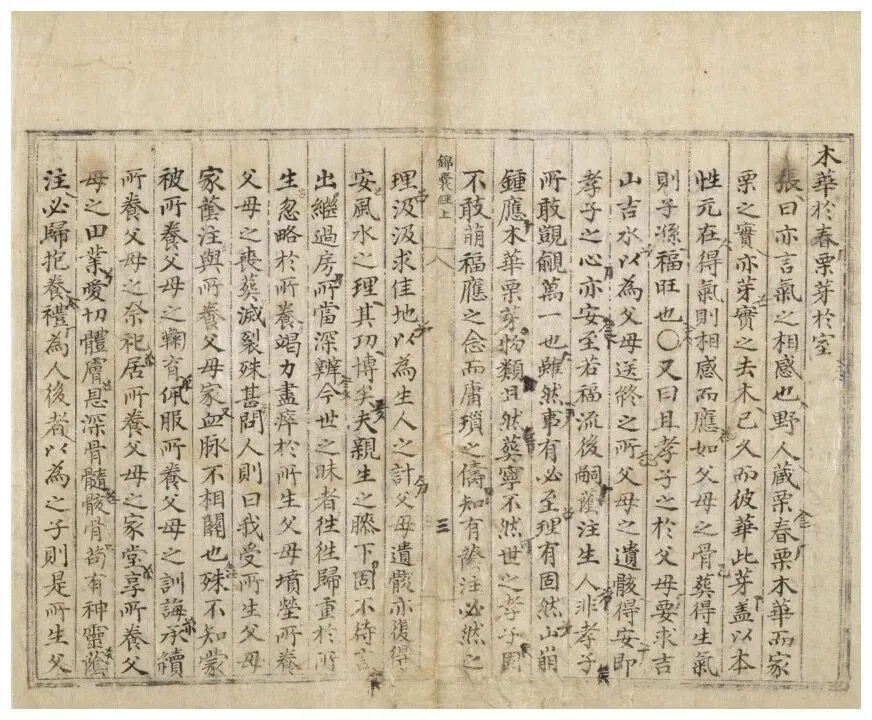 木華於春栗芽於室
張曰亦言氣之相感也野人藏栗春栗木華而家
栗之實亦芽實之去木已久而彼華此芽盖以本
性元在得氣則相感而應如父母之骨葬得生氣
則子孫福旺也○又曰且孝子之於父母要求吉
山吉水以為父母送終之所父母之遺骸得安即
孝子之心亦安至若福流後嗣蔭注生人非孝子
所敢覬覦萬一也雖然事有必至理有固然山崩
鍾應木華栗芽物類且然葬寧不然世之孝子固
不敢萌福應之念而庸瑣之儔知有蔭注必然之
錦囊經上
三
理汲汲求佳地以為生人之計父母遺骸亦復得
安風水之理其功博矣夫親生之膝下固不待言
出繼過房所當深辨今世之昧者徃徃歸重於所
生忽略於所養竭力盡瘁於所生父母墳塋所養
父母之喪葬滅裂殊甚問人則曰我受所生父母
家蔭注與所養父母家血脉不相關也殊不知蒙
被所養父母之鞠育佩服所養父母之訓誨承續
所養父母之祭祀居所養父母之家堂享所養父
母之田業愛切體膚恩深骨髓骸骨苟有神靈蔭
注必歸抱養禮為人後者以為之子則是所生父